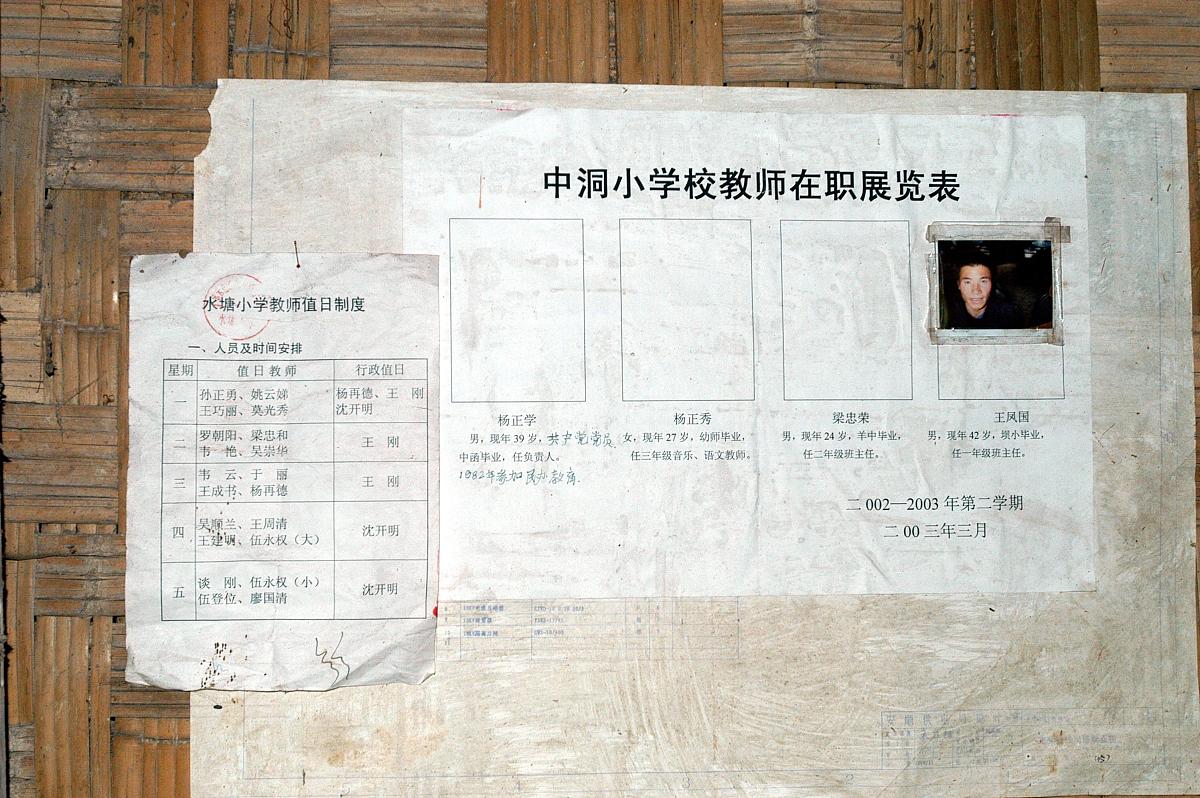 中洞小学校教师在职展览表
杨正学
男，现年39岁，共中党党员
中函毕业，任负责人。
1982年参加民办教育.
杨正秀
女，现年27岁，幼师毕业，
任三年级音乐、语文教师。
梁忠荣
男，现年24岁，羊中毕业，
任二年级班主任。
王凤国
男，现年42岁，坝小毕业，
任一年级班主任。
二002—2003年第二学期
二00三年三月
水塘小学教师值日制度
一、人员及时间安排
星期 值日教师 行政值日
一 孙正勇、姚云娣 杨再德、王 刚
王巧丽、莫光秀 沈开明
二 罗朝阳、梁忠和 王 刚
韦 艳、吴崇华
三 韦 云、于 丽 王 刚
王成书、杨再德
四 吴顺兰、王周清 沈开明
王建明、伍永权（大）
五 谈 刚、伍永权（小） 沈开明
伍登位、廖国清